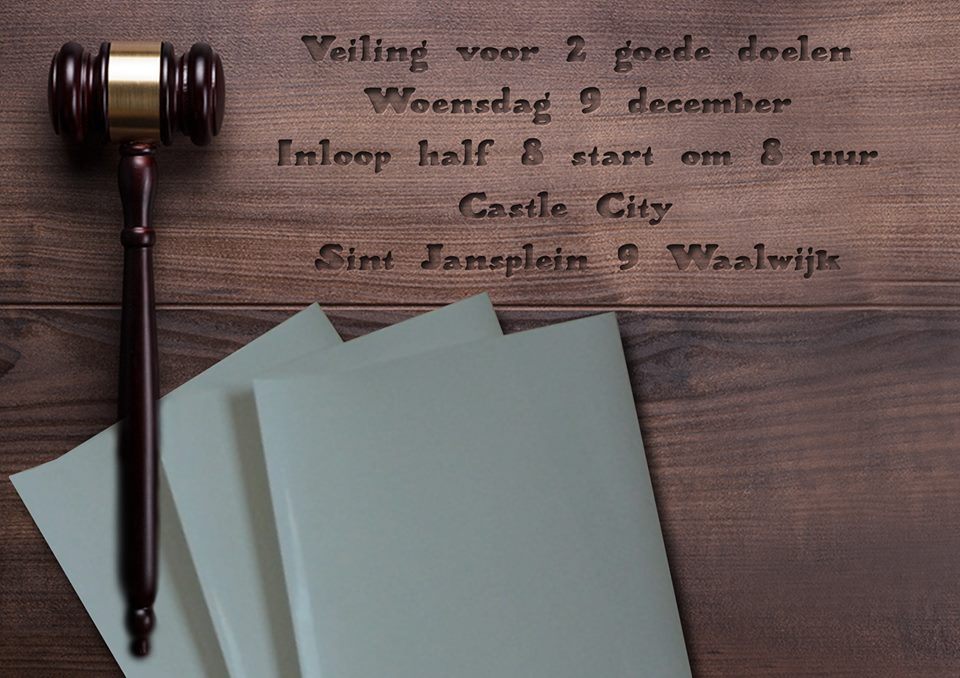 Veiling voor 2 goede doelen
Woensdag 9 december
Inloop half 8 start om 8 uur
Castle City
Sint Jansplein 9 Waalwijk